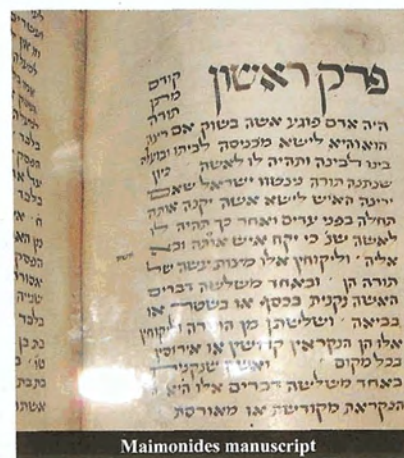 פרק ראשון
קודם
מתן
תורה
היה אדם פוגע אשה בשוק אם רצה
הוא והיא לישא מכניסה לביתו ובועלה
בינו לבינה ותהיה לו לאשה כיון
שנתנה תורה נצטוו ישראל שאם
ירצה האיש לישא אשה יקנה אותה
תחלה בפני עדים ואחר כך תהיה לו
לאשה שנ׳ כי יקח איש אשה ובא
אליה ׳ וליקוחין אלו מצות עשה של
תורה הן ׳ ובאחד משלשה דברים
האשה נקנית בכסף או בשטר או
בביאה ׳ ושלשתן מן התורה וליקוחין
אלו הן הנקראין קדושין או אירוסין
בכל מקום ׳ ואשה שנקנית
באחד משלשה דברים אלו היא
הנקראת מקודשת או מאורסת
Maimonides manuscript